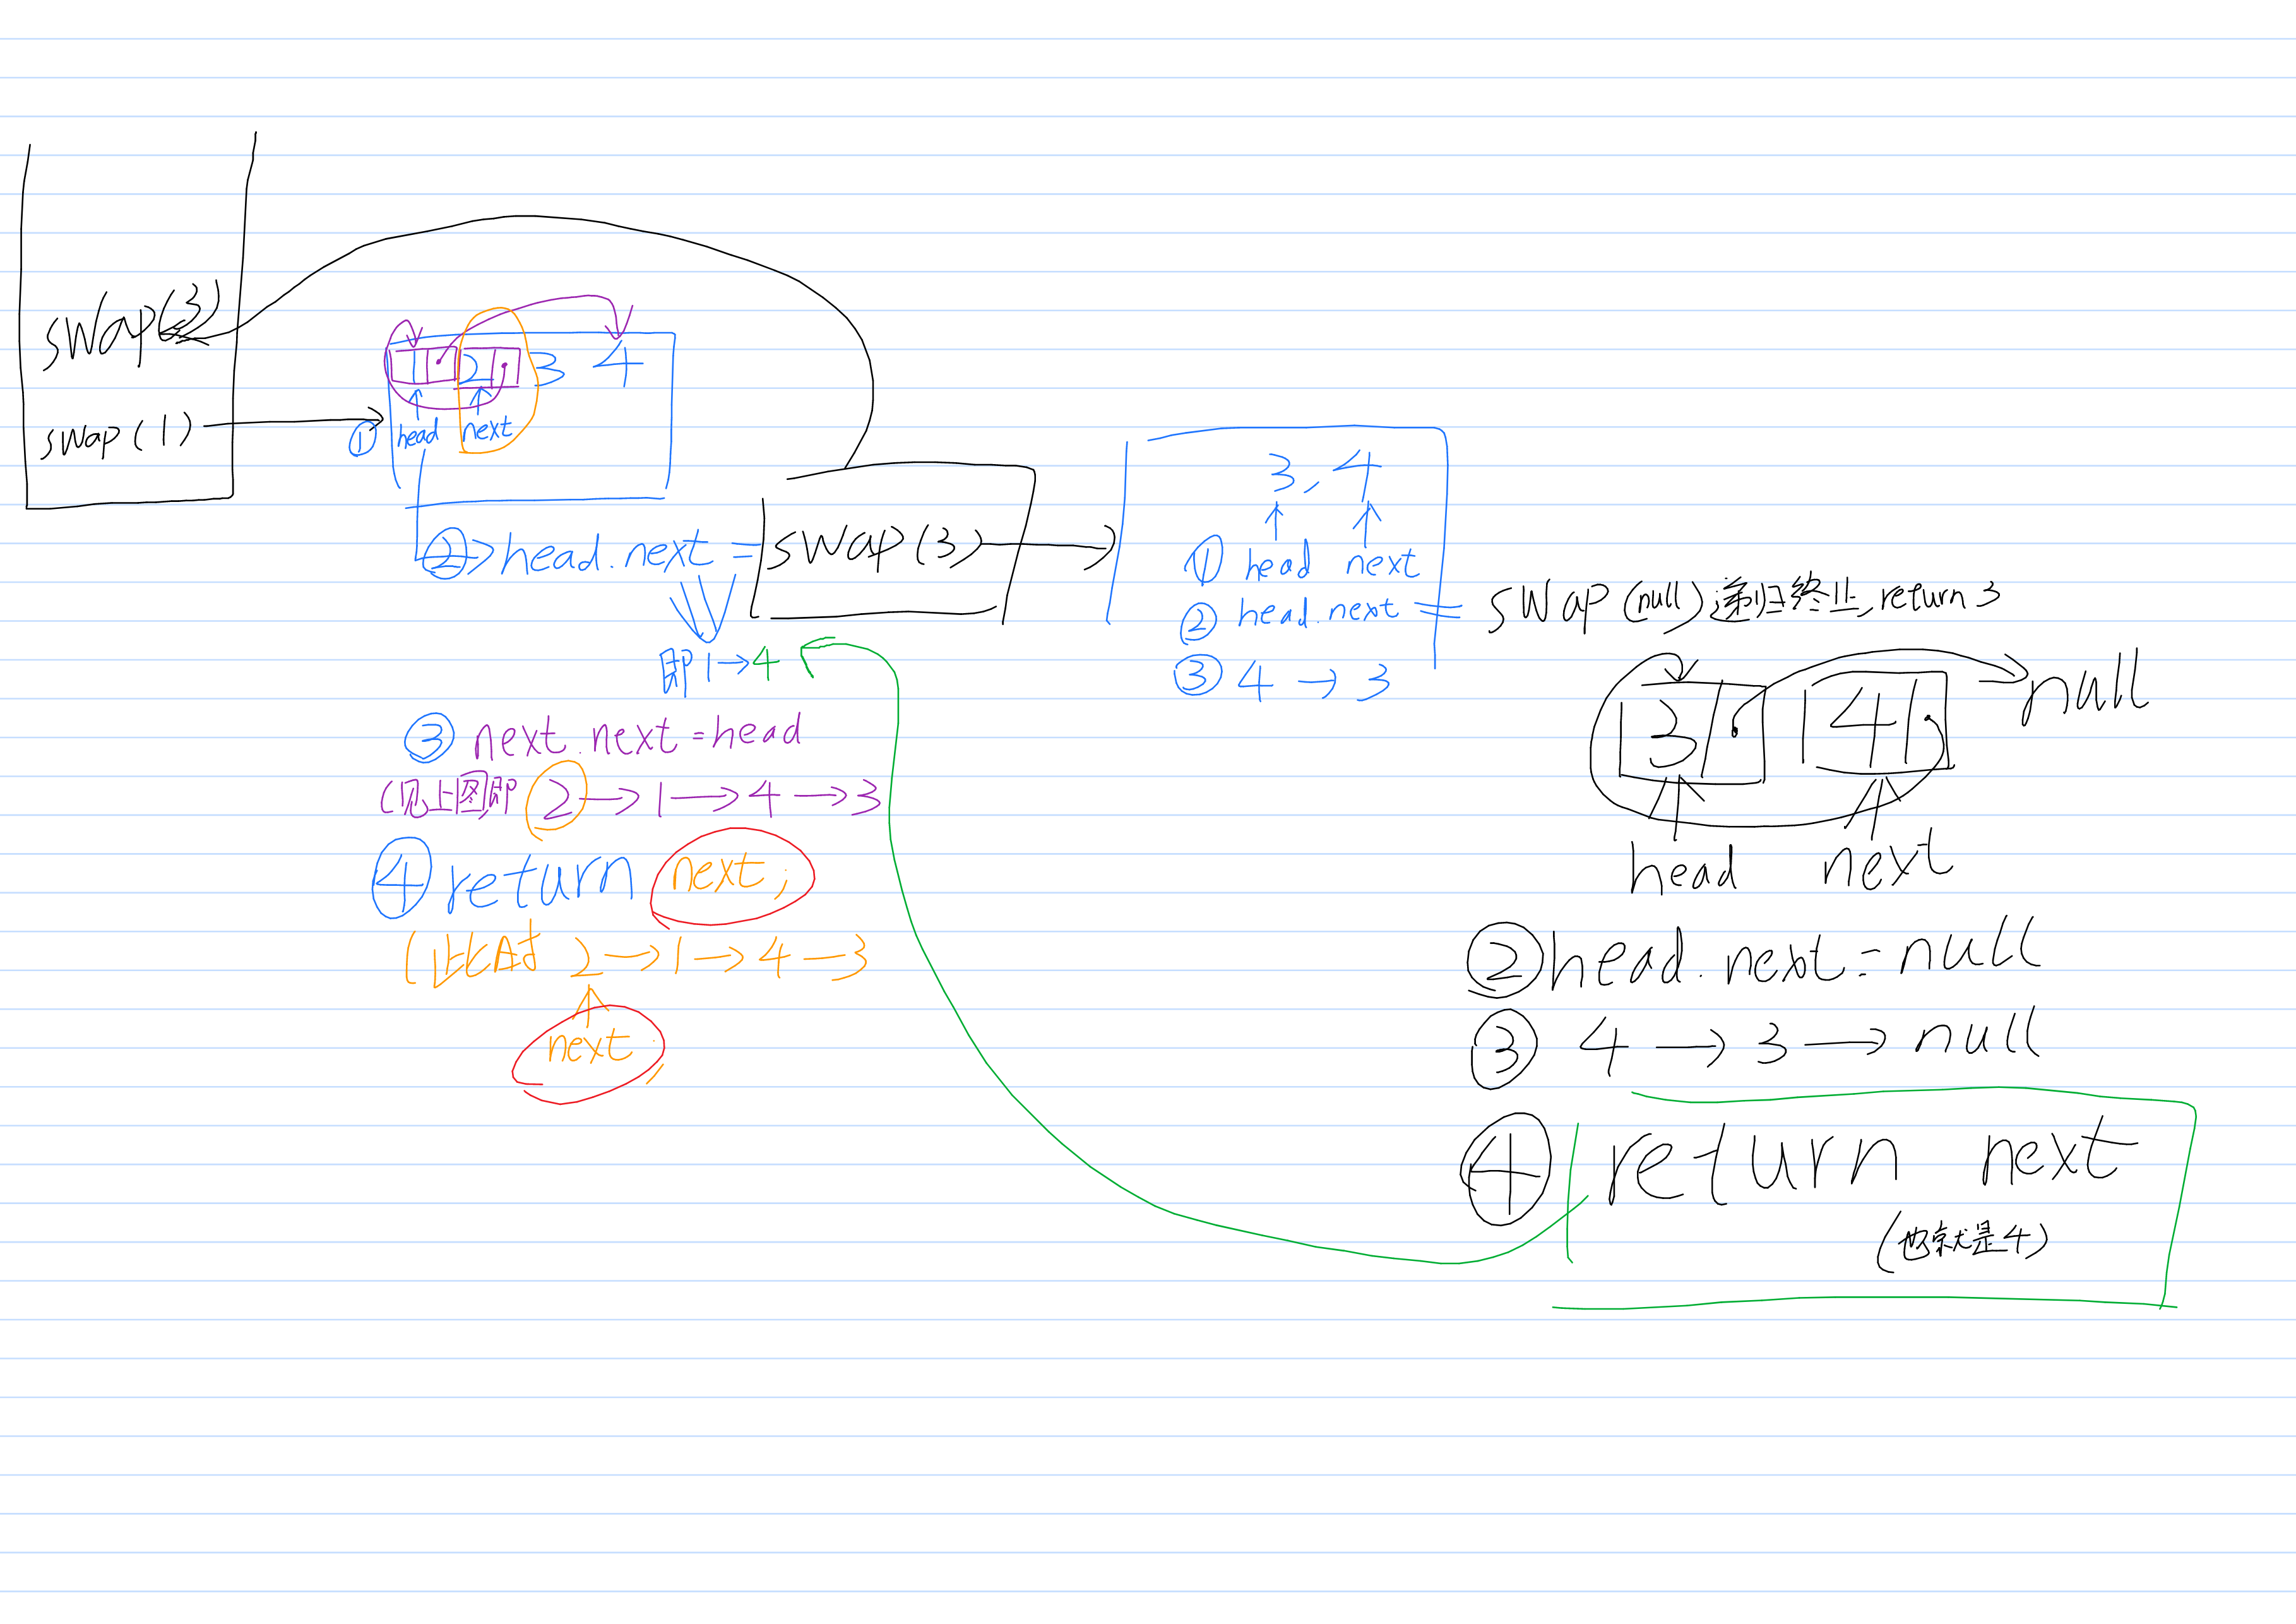 swap(3)
swap(1)
1 2 3 4
① head next
② head.next = swap(3)
即1→4
③ next.next=head
(见上图)即 2→1→4→3
④ return next;
(此时 2→1→4→3
next
3, 4
① head next
② head.next = swap(null)递归终止,return 3
③ 4→3
3 4 null
head next
② head.next=null
③ 4→3→null
④ return next
(也就是4)